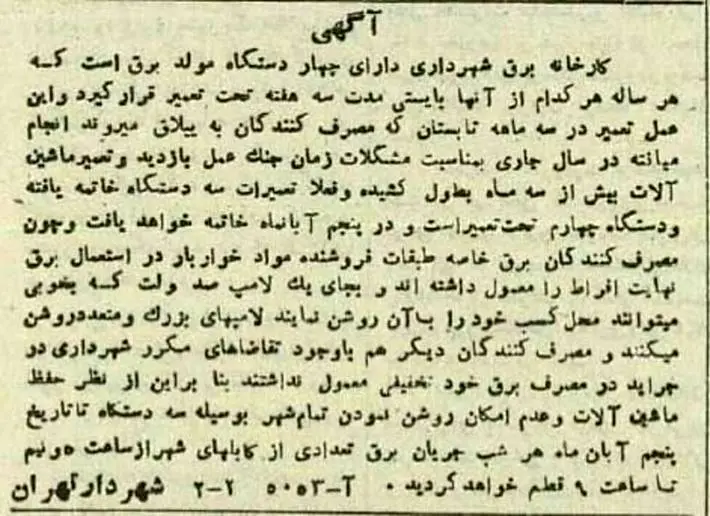 آگهی
کارخانه برق شهرداری دارای چهار دستگاه مولد برق است که
هر ساله هر کدام از آنها بایستی مدت سه هفته تحت تعمیر قرار گیرد و این
عمل تعمیر در سه ماهه تابستان که مصرف کنندگان به ییلاق میروند انجام
میافته در سال جاری بمناسبت مشکلات زمان جنك عمل بازدید و تعمیر ماشین
آلات بیش از سه ماه بطول کشیده و فعلا تعمیرات سه دستگاه خاتمه یافته
و دستگاه چهارم تحت تعمیر است و در پنجم آبانماه خاتمه خواهد یافت و چون
مصرف کنندگان برق خاصه طبقات فروشنده مواد خواربار در استعمال برق
نهایت افراط را معمول داشته اند و بجای یك لامپ صد ولت که بخوبی
میتوانند محل کسب خود را بآن روشن نمایند لامپهای بزرك و متعدد روشن
میکنند و مصرف کنندگان دیگر هم باوجود تقاضاهای مکرر شهرداری در
جراید در مصرف برق خود تخفیفی معمول نداشتند بنا براین از نظر حفظ
ماشین آلات و عدم امکان روشن نمودن تمام شهر بوسیله سه دستگاه تا تاریخ
پنجم آبان ماه هر شب جریان برق تعدادی از کابلهای شهر از ساعت ۵ و نیم
تا ساعت ۹ قطع خواهد گردید . آ-۵۰۵۳ ۲-۲ شهردار تهران